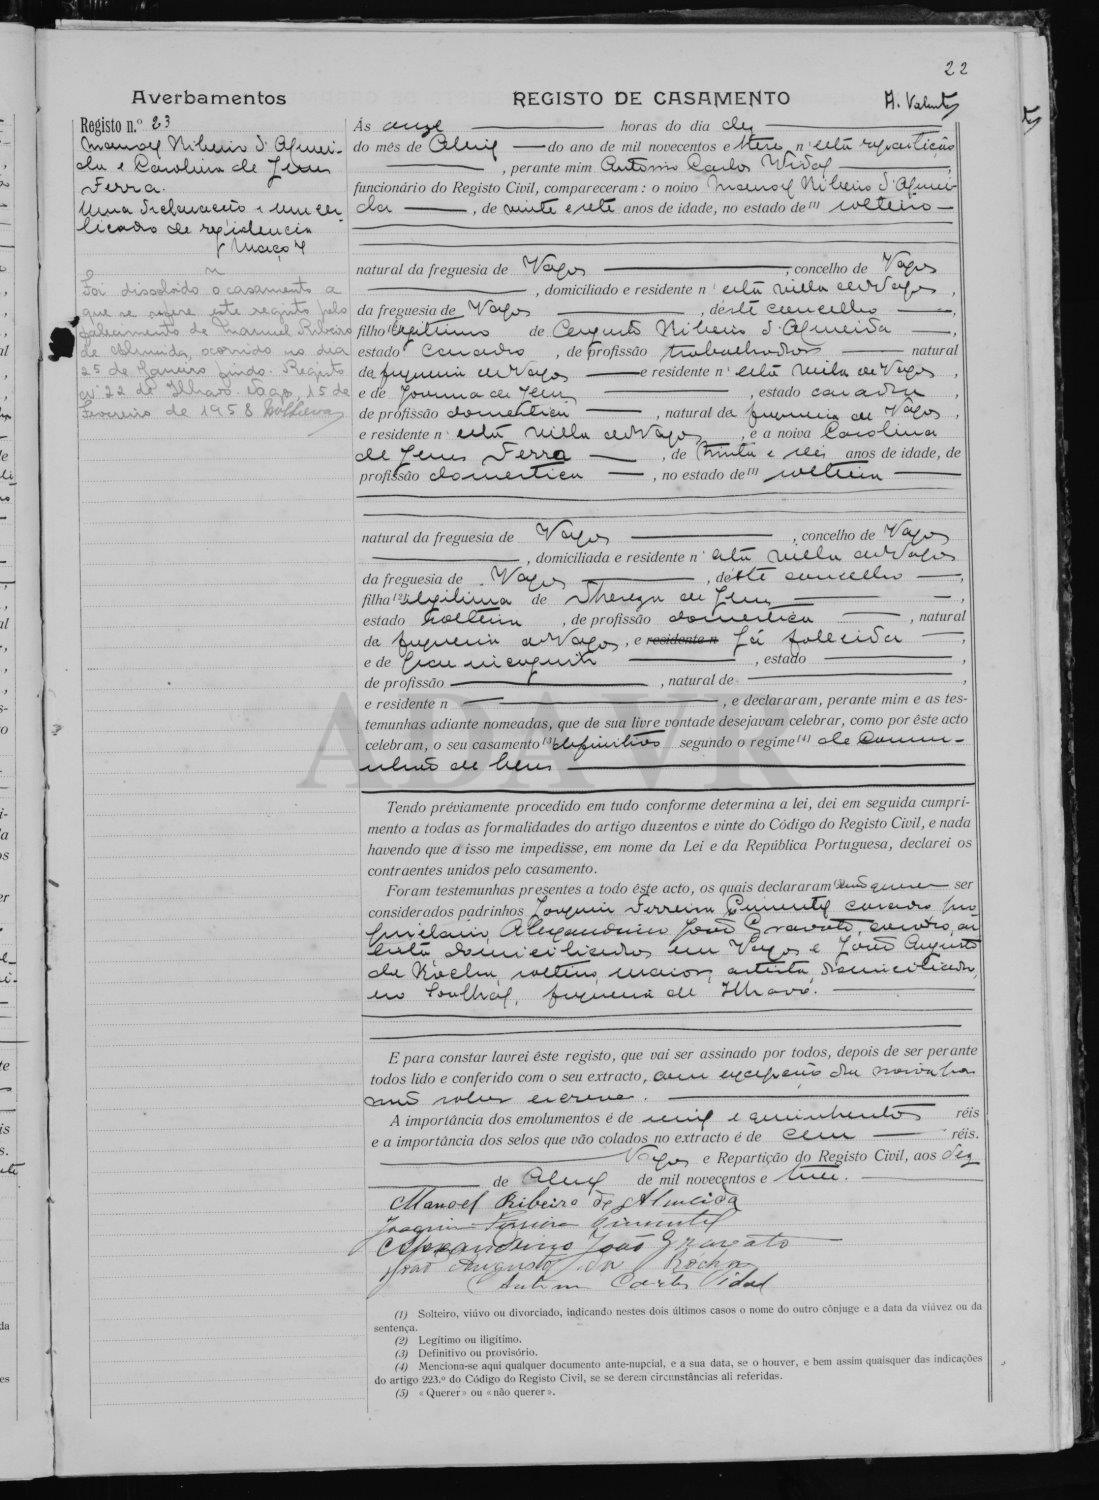 22
Averbamentos
REGISTO DE CASAMENTO
Registo n.º 23
Manoel Ribeiro d'Almei-
da e Carolina de Jesus
Ferra.
Uma declaração e um cer-
ticado de residencia
Maço 4
Foi dissolvido o casamento a
que se refere este registo pelo
falecimento de Manuel Ribeiro
de Almeida, ocorrido no dia
25 de Janeiro findo. Registo
nº 22 de Ilhavo. Vagos, 15 de
Fevereiro de 1958
Às onze horas do dia dez
do mês de Abril do ano de mil novecentos e treze, n'esta repartição
, perante mim Antonio Carlos Vidal,
funcionário do Registo Civil, compareceram: o noivo Manoel Ribeiro d'Almei-
da, de vinte e sete anos de idade, no estado de (1) solteiro
natural da freguesia de Vagos, concelho de Vagos
, domiciliado e residente n'esta villa de Vagos,
da freguesia de Vagos, dêste concelho,
filho legitimo de Augusto Ribeiro d'Almeida,
estado casado, de profissão trabalhador natural
da freguesia de Vagos e residente n'esta villa de Vagos,
e de Joanna de Jesus, estado casada,
de profissão domestica, natural da freguesia de Vagos,
e residente n'esta villa de Vagos, e a noiva Carolina
de Jesus Ferra, de trinta e seis anos de idade, de
profissão domestica, no estado de (1) solteira
natural da freguesia de Vagos, concelho de Vagos
, domiciliada e residente n'esta villa de Vagos
da freguesia de Vagos, dêste concelho,
filha (2) ilegitima de Thereza de Jesus,
estado solteira, de profissão domestica, natural
da freguesia de Vagos, e residente n já falecida,
e de pae incognito, estado,
de profissão, natural de,
e residente n, e declararam, perante mim e as tes-
temunhas adiante nomeadas, que de sua livre vontade desejavam celebrar, como por êste acto
celebram, o seu casamento (3) definitivo segundo o regime (4) de commu-
nhão de bens
Tendo préviamente procedido em tudo conforme determina a lei, dei em seguida cumpri-
mento a todas as formalidades do artigo duzentos e vinte do Código do Registo Civil, e nada
havendo que a isso me impedisse, em nome da Lei e da República Portuguesa, declarei os
contraentes unidos pelo casamento.
Foram testemunhas presentes a todo êste acto, os quais declararam não querer ser
considerados padrinhos Joaquim Ferreira Pimentel, casado, pro-
prietario, Alexandrino João Gravato, casado, ar-
tista, domiciliados em Vagos e João Augusto
da Rocha, solteiro, maior, artista, domiciliado,
no Soalhal, freguesia de Ilhavo.
E para constar lavrei êste registo, que vai ser assinado por todos, depois de ser perante
todos lido e conferido com o seu extracto, com excepção da noiva por
não saber escrever.
A importância dos emolumentos é de mil e quinhentos réis
e a importância dos selos que vão colados no extracto é de cem réis.
Vagos e Repartição do Registo Civil, aos dez
de Abril de mil novecentos e treze.
Manoel Ribeiro de Almeida
Joaquim Ferreira Pimentel
Alexandrino João Gravato
João Augusto da Rocha
Antonio Carlos Vidal
(1) Solteiro, viúvo ou divorciado, indicando nestes dois últimos casos o nome do outro cônjuge e a data da viúvez ou da
sentença.
(2) Legítimo ou iligítimo.
(3) Definitivo ou provisório.
(4) Menciona-se aqui qualquer documento ante-nupcial, e a sua data, se o houver, e bem assim quaisquer das indicações
do artigo 223.º do Código do Registo Civil, se se derem circunstâncias ali referidas.
(5) «Querer» ou «não querer».
ADAVR